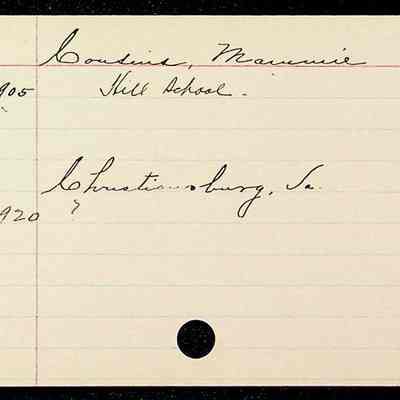 Cousins, Mammie
905 Hill School.
Christiansburg, Va.
920 ?